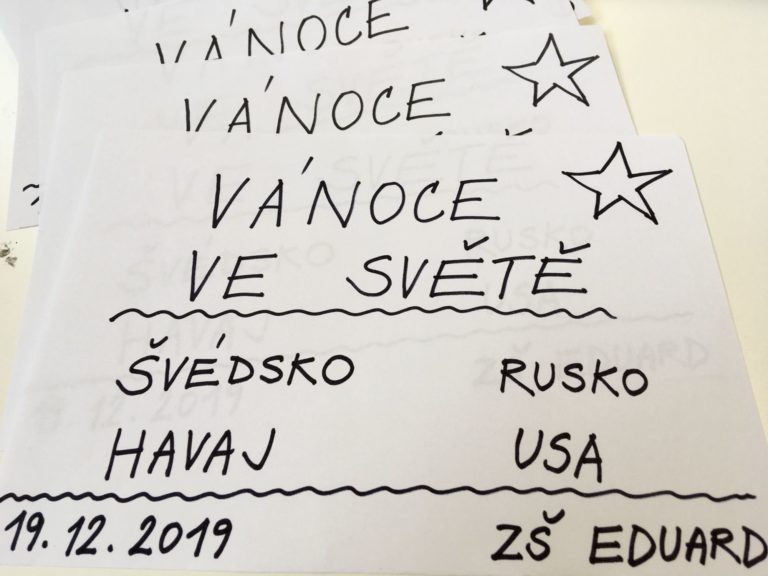 VÁNOCE
VÁNOCE
VÁNOCE
VE SVĚTĚ
ŠVÉDSKO RUSKO
HAVAJ USA
19.12.2019 ZŠ EDUARD